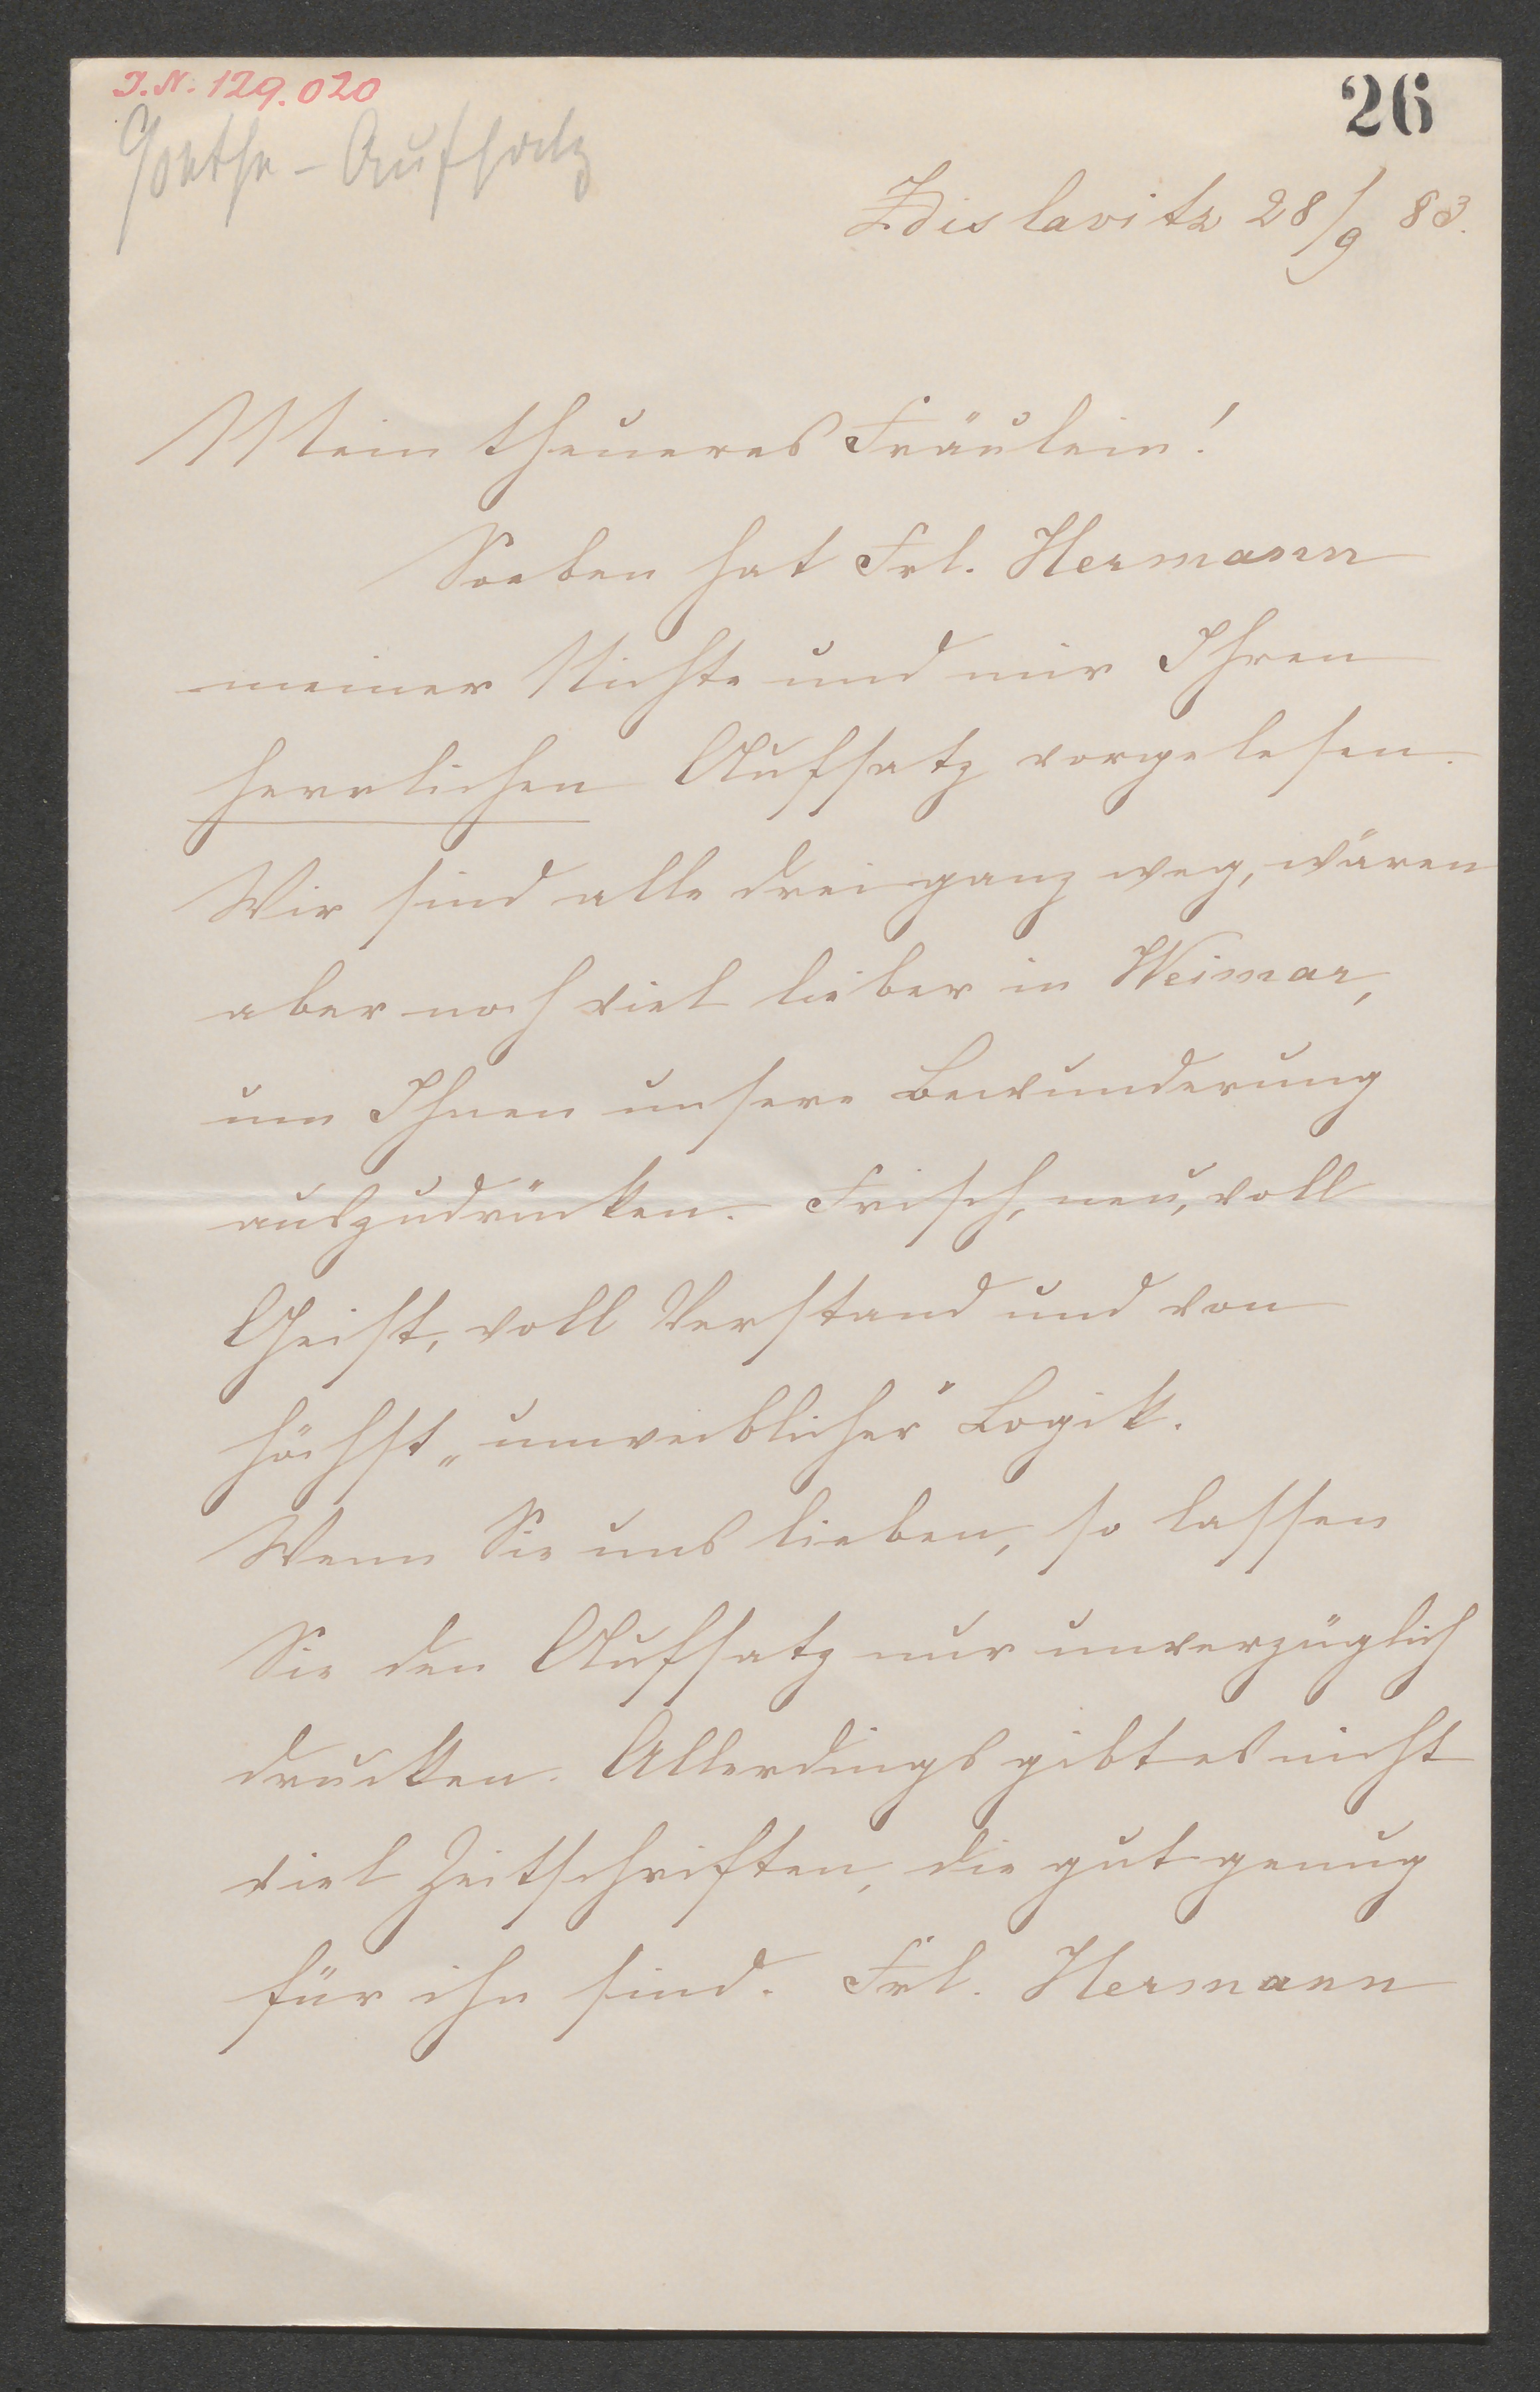 J.N. 129.020
26
Goethe-Aufsatz
Zdislavitz 28/9 83.
Mein theueres Fräulein!
Soeben hat Frl. Hermann
meiner Nichte und mir Ihren
herrlichen Aufsatz vorgelesen.
Wir sind alle drei ganz weg, wären
aber noch viel lieber in Weimar,
um Ihnen unsere Bewunderung
auszudrücken. Frisch, neu, voll
Geist, voll Verstand und von
höchst „unweiblicher" Logik.
Wenn Sie uns lieben, so lassen
Sie den Aufsatz nur unverzüglich
drucken. Allerdings gibt es nicht
viel Zeitschriften, die gut genug
für ihn sind. Frl. Hermann